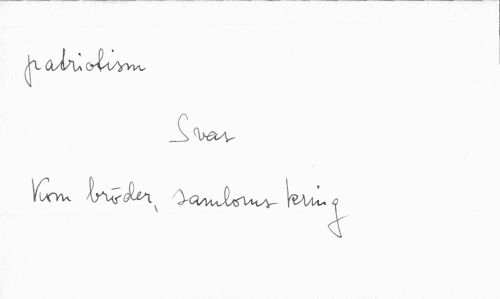 patriotism
Svas
Kom bröder, samloms kring